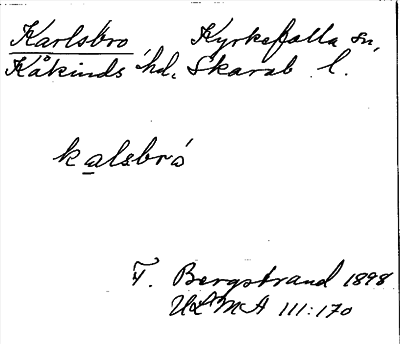 Karlsbro Kyrkefalla sn,
Kåkinds hd, Skarab. l.
kalsbró
T. Bergstrand 1898
ULMA 111:170